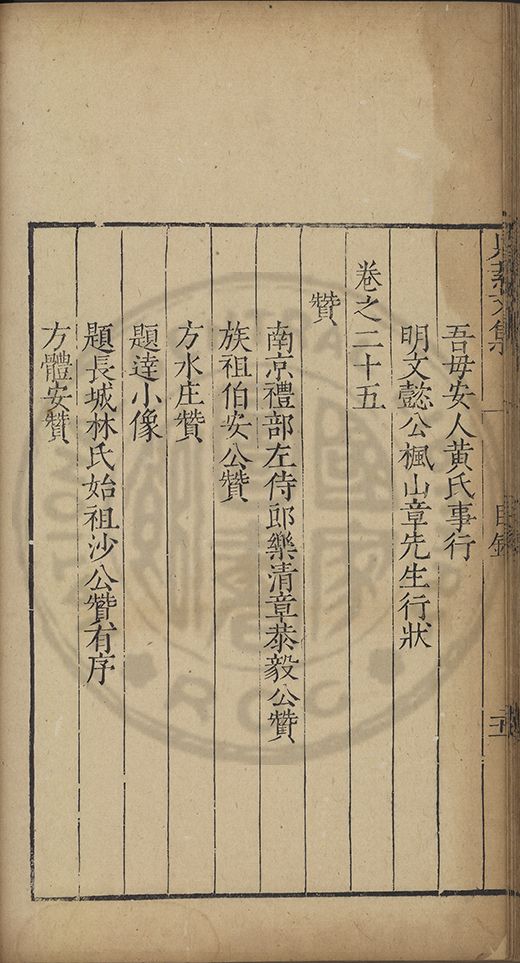 文集
目錄
吾母安人黄氏事行
明文懿公楓山章先生行狀
卷之二十五
贊
南京禮部左侍郎樂清章恭毅公贊
族祖伯安公贊
方水庄贊
題達小像
題長城林氏始祖沙公贊有序
方體安贊